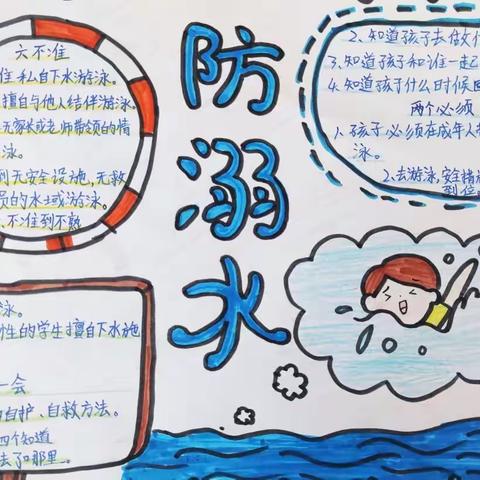 六不准
住私自下水游泳。
擅自与他人结伴游泳。
无家长或老师带领的情
泳。
到无安全设施,无救
员的水域游泳。
不准到不熟
防溺水
2、知道孩子去做什
3、知道孩子和谁一起
4、知道孩子什么时候回
两个必须
1、孩子必须在成年人
泳。
2、去游泳,安全措施
到位
泳。
性的学生擅自下水施
一会
自护、自救方法。
四个知道
去了那里